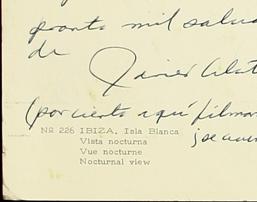 pronto mil salu
de
Javier
(por cierto aquí filmar
Nº 226 IBIZA. Isla Blanca
Vista nocturna
Vue nocturne
Nocturnal view